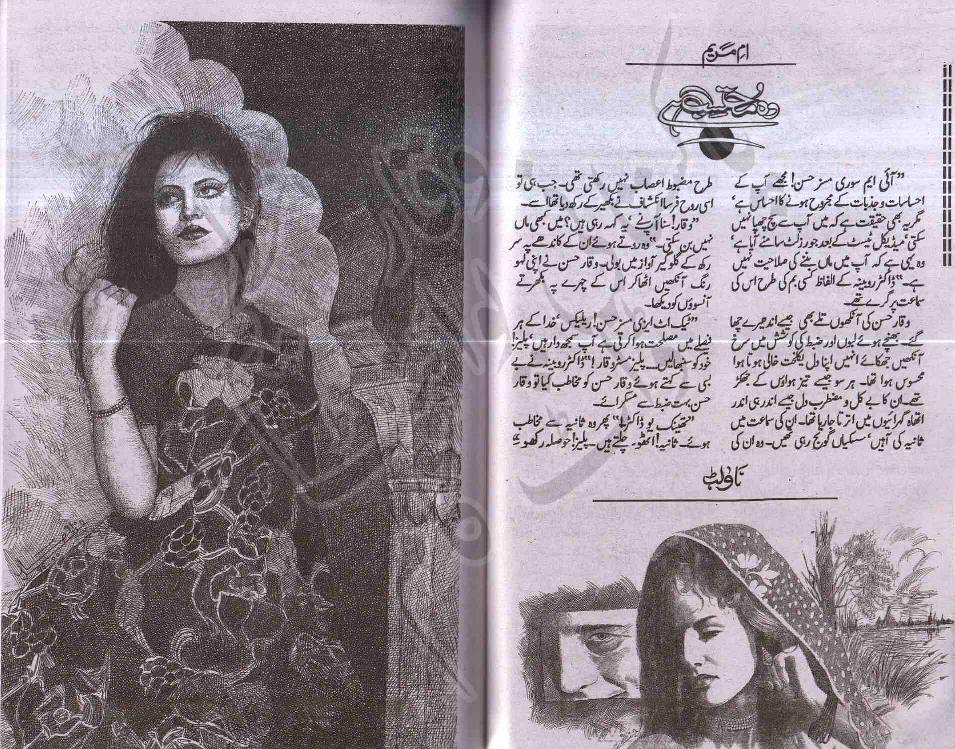 ام مریم
”آئی ایم سوری مسز حسن! مجھے آپ کے
احساسات و جذبات کے مجروح ہونے کا احساس ہے‘
مگر یہ بھی حقیقت ہے کہ میں آپ سے سچ چھپا نہیں
سکتی‘ میڈیکل ٹیسٹ کے بعد جو رزلٹ سامنے آیا ہے‘
وہ یہی ہے کہ آپ میں ماں بننے کی صلاحیت نہیں
ہے۔“ ڈاکٹر روبینہ کے الفاظ کسی بم کی طرح اس کی
سماعت پر گرے تھے۔
وقار حسن کی آنکھوں تلے بھی جیسے اندھیرے چھا
گئے۔ بھینچے ہوئے لبوں اور ضبط کی کوشش میں سرخ
آنکھیں جھکائے انہیں اپنا دل یکلخت خالی ہوتا ہوا
محسوس ہوا تھا۔ ہر سو جیسے تیز ہواؤں کے جھکڑ
تھے۔ ان کا بے کل و مضطرب دل جیسے اندر ہی اندر
اتھاہ گہرائیوں میں اترتا جا رہا تھا۔ ان کی سماعت میں
ثانیہ کی آہیں‘ سسکیاں گونج رہی تھیں۔ وہ ان کی
طرح مضبوط اعصاب نہیں رکھتی تھی۔ جب ہی تو
اسی روح فرسا انکشاف نے بکھیر کے رکھ دیا تھا اسے۔
”وقار! سنا آپ نے یہ کہہ رہی ہیں؟ میں کبھی ماں
نہیں بن سکتی۔“ وہ روتے ہوئے ان کے کاندھے پہ سر
رکھ کے گلوگیر آواز میں بولی۔ وقار حسن نے اپنی لہو
رنگ آنکھیں اٹھا کر اس کے چہرے پہ بکھرتے
آنسوؤں کو دیکھا۔
”ٹیک اٹ ایزی مسز حسن! ریلیکس‘ خدا کے ہر
فیصلے میں مصلحت ہوا کرتی ہے آپ سمجھ دار ہیں‘ پلیز!
خود کو سنبھالیں.... پلیز مسٹر وقار!“ ڈاکٹر روبینہ نے بے
بسی سے کہتے ہوئے وقار حسن کو مخاطب کیا تو وقار
حسن بہت ضبط سے مسکرائے۔
”تھینک یو ڈاکٹر!“ پھر وہ ثانیہ سے مخاطب
ہوئے۔ ثانیہ! اٹھو۔ چلتے ہیں۔ پلیز! حوصلہ رکھو
ناولٹ